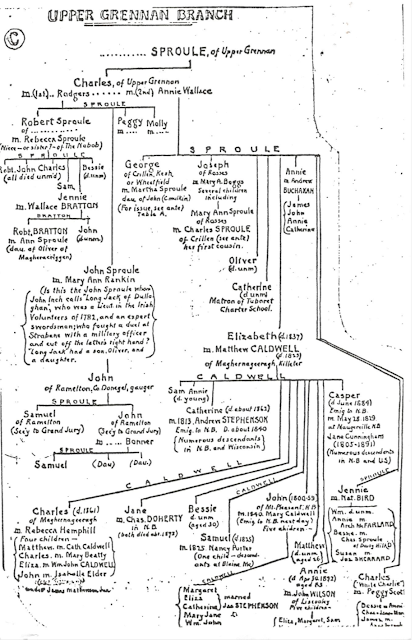 UPPER GRENNAN BRANCH
C
SPROULE, of Upper Grennan
Charles, of Upper Grennon
m. (1st).. Rodgers ...... m. (2nd) Annie Wallace
SPROULE
Robert Sproule
of ............
m. Rebecca Sproule
(Niece - or sister? - of The Nabob)
Peggy Molly
m. .... m. ....
SPROULE
Robt. John Charles
(all died unmd)
Bessie
(d. unm)
Sam
Jennie
m. Wallace BRATTON
BRATTON
Robt. BRATTON
m. Ann Sproule
(dau. of Oliver of
Magheracreggan)
John
(d. unm.)
SPROULE
George
of Crillin, Kesh,
or Wheatfield
m. Martha Sproule
dau. of John
(For issue, see ante)
Table A.
Joseph
of Rosses
m. Mary A. Boggs
Several children
including
Mary Ann Sproule
of Rosses
m. Charles SPROULE
of Crillen (see ante)
her first cousin.
Annie
m. Andrew
BUCHANAN
James
John
Annie
Catherine
Oliver
(d. unm.)
Catherine
(d. unm)
Matron of Tuboret
Charter School.
John Sproule
m. Mary Ann Rankin
(Is this the John Sproule whom
John Inch calls 'Long Jack of Dullo-
ghan', who was a Lieut. in the Irish
Volunteers of 1782, and an expert
swordsman; who fought a duel at
Strabane with a military officer
and cut off the latter's right hand?
'Long Jack' had a son, Oliver, and
a daughter.
John
of Ramelton, Co Donegal, gauger
SPROULE
Samuel
of Ramelton
(Secy to Grand Jury)
John
of Ramelton
(Secy to Grand Jury)
m ..... Bonner
SPROULE
Samuel (Dau) (Dau.)
Elizabeth (d. 1837)
m. Matthew CALDWELL
(d. 1823)
of Maghernageeragh, Killeter
CALDWELL
Sam Annie
(d. young)
Catherine (d. about 1862)
m. 1813, Andrew STEPHENSON
Emig. to N.B. D. about 1840
(Numerous descendants
in N.B. and Wisconsin)
Casper
(d June 1884)
Emig to N.B.
m. May 28 1829
at Naugerville N.B.
Jane Cunningham
(1805-1891)
(Numerous descendants
in N.B and U.S)
CALDWELL
Charles (d. 1861)
of Maghernageeragh
m. Rebecca Hemphill
Four children -
Matthew. m. Cath. Caldwell
Charles. m. Mary Beatty
Eliza. m. Wm. John CALDWELL
John m. Isabella Elder
Jane
m. Chas. DOHERTY
in N.B
(both died ant. 1872)
Bessie
d. unm.
(aged 30)
CALDWELL
Samuel (d. 1825)
m. 1825. Nancy Porter
(One child - descend-
ants at Blaine Me)
John (1800-59)
of Mt. Pleasant, N.B
m. 1840. Mary Caldwell
(Emig to N.B. next day)
Five children -
Matthew
(d. unm)
Annie
(d Apr 30, 1892)
aged 83
m. John WILSON
of Liscooley
Five children -
Eliza, Margaret, Sam
CALDWELL
Margaret
Eliza
Catherine
Mary Jane
Wm. John
married
Jas STEPHENSON
SPROULE
Jennie
m. Nat. BIRD
Wm. d. unm.
Annie m
Arch McFARLAND
Bessie m.
Chas Sproule
Susan m
Jos. SHERRARD
Charles
("Uncle Charlie")
m. Peggy Scott